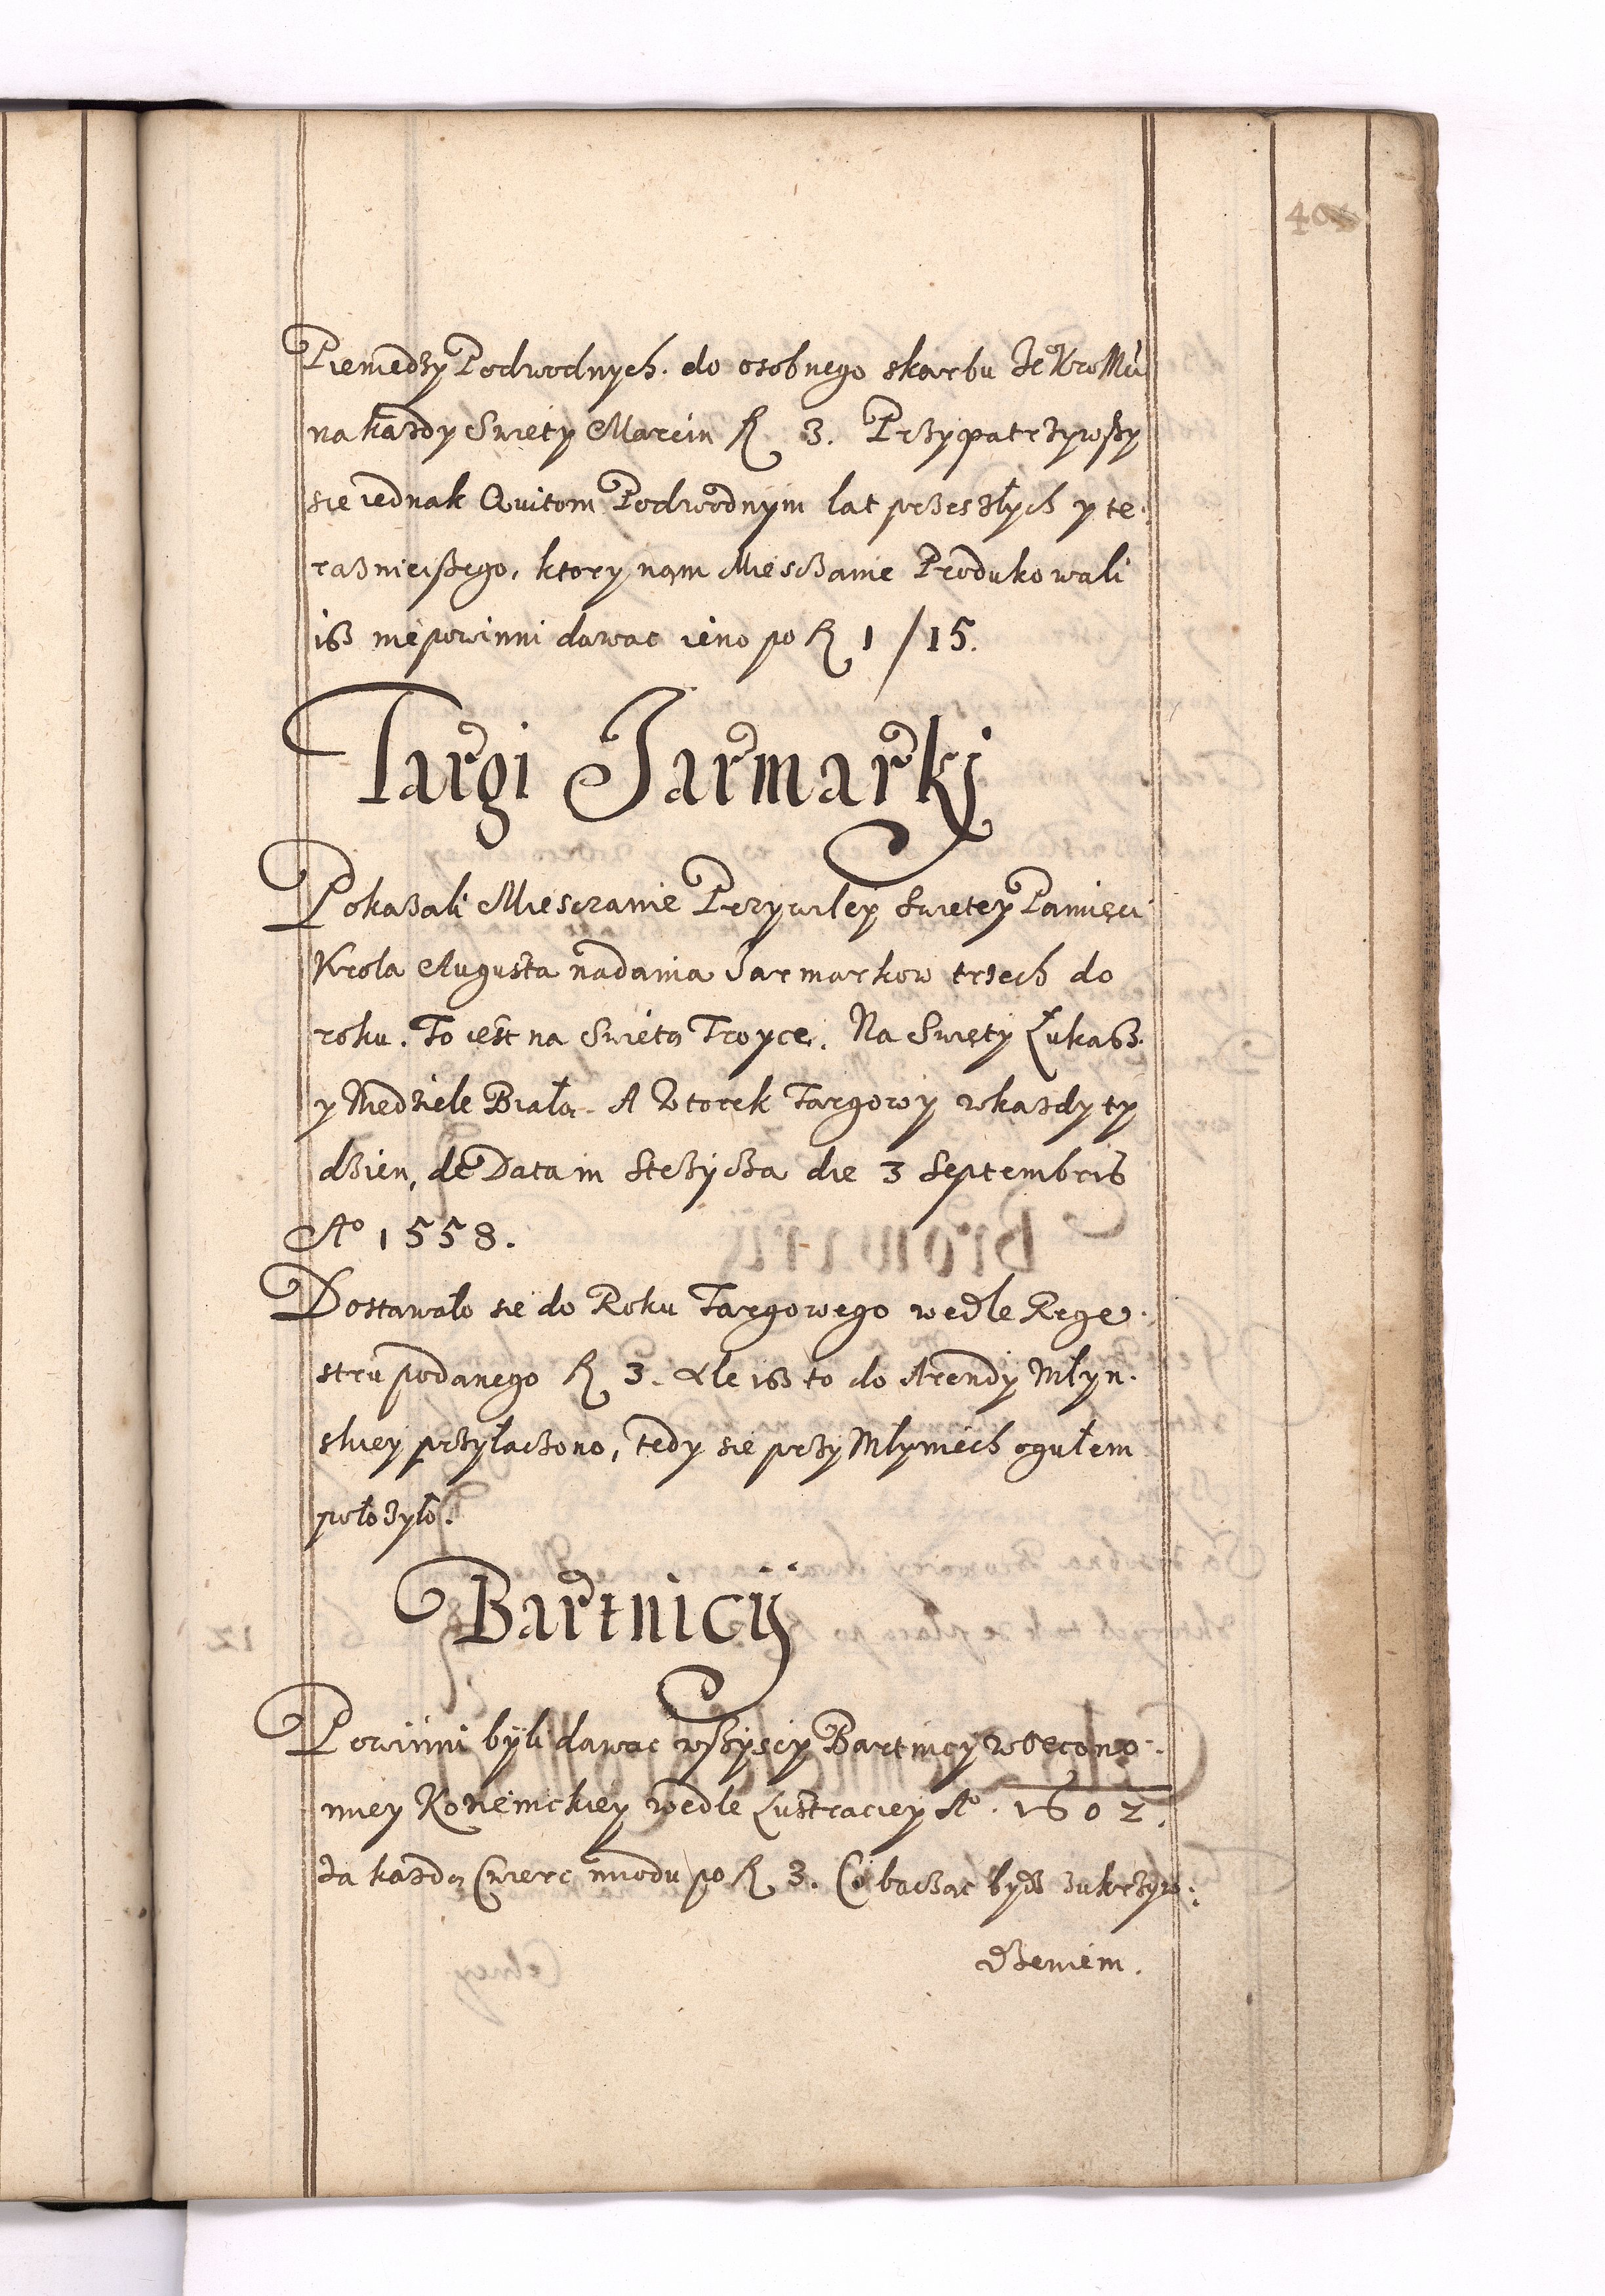 Pieniedzy Podwodnych. do osobnego skarbu Je KroMci
na kazdy Swiety Marcin fl 3. Przypatrzywszy
sie iednak Quitom Podwodnym lat przeszłych y te:
raznieiszego, ktory nąm Mieszczanie Produkowali
isz niepowinni dawac ieno po fl 1/15.
Targi Jarmarkj
Pokazali Miesczanie Przywiley Swietey Pamięci
Krola Augusta nadania Jarmarkow trzech do
roku. To iest na Swietą Troyce. Na Swięty Łukasz.
y Niedziele Białą. A Wtorek Targowy wkazdy ty
dzien, de Data in Stezycza die 3 Septembris
Aº 1558.
Dostawało sie do Roku Targowego wedle Rege:
stru podanego fl 3. Ale isz to do Arendy Młyn:
skiey przyłaczono, tedy sie przy Młyniech ogułem
położyło.
Bartnicÿ
Powinni byli dawac wszyscy Bartnicy w Oecono:
miey Kozienickiey wedle Lustraciey Aº. 1602.
Za kazdą Cwierc miodu po fl 3. Co baczac bydz zukrzyw:
dzeniem.